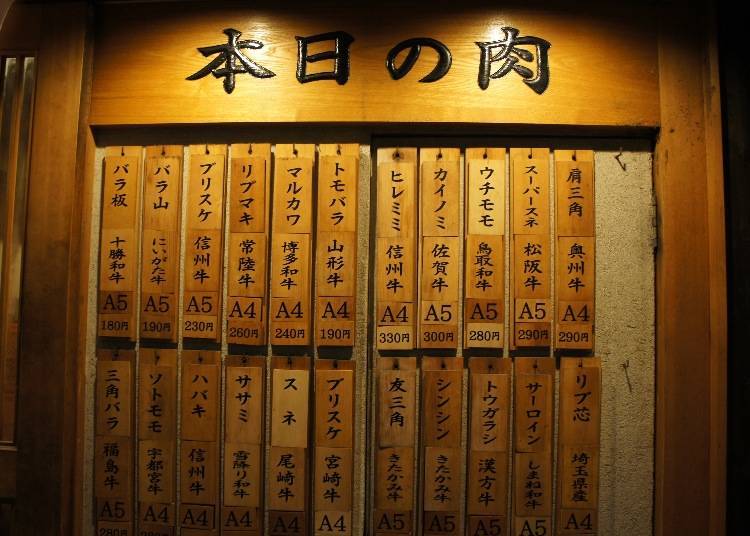 本日の肉
肩三角 奥州牛
A4
290円
スーパースネ 松阪牛
A5
290円
ウチモモ 鳥取和牛
A5
280円
カイノミ 佐賀牛
A5
300円
ヒレミミ 信州牛
A4
330円
トモバラ 山形牛
A4
190円
マルカワ 博多和牛
A4
240円
リブマキ 常陸牛
A4
260円
ブリスケ 信州牛
A5
230円
バラ山 にいがた牛
A5
190円
バラ板 十勝和牛
A5
180円
リブ芯 埼玉県産
A4
サーロイン しまね和牛
A5
トウガラシ 漢方牛
A5
シンシン きたかみ牛
A5
友三角 きたかみ牛
A5
ブリスケ 宮崎牛
A4
スネ 尾崎牛
A4
ササミ 雪降り和牛
A4
ハバキ 信州牛
A4
ソトモモ 宇都宮牛
A4
三角バラ 福島牛
A5
280円